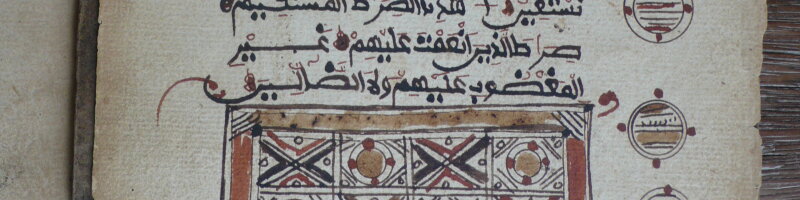 نستعين اهدنا الصراط المستقيم
صراط الذين أنعمت عليهم غير
المغضوب عليهم ولا الضالين